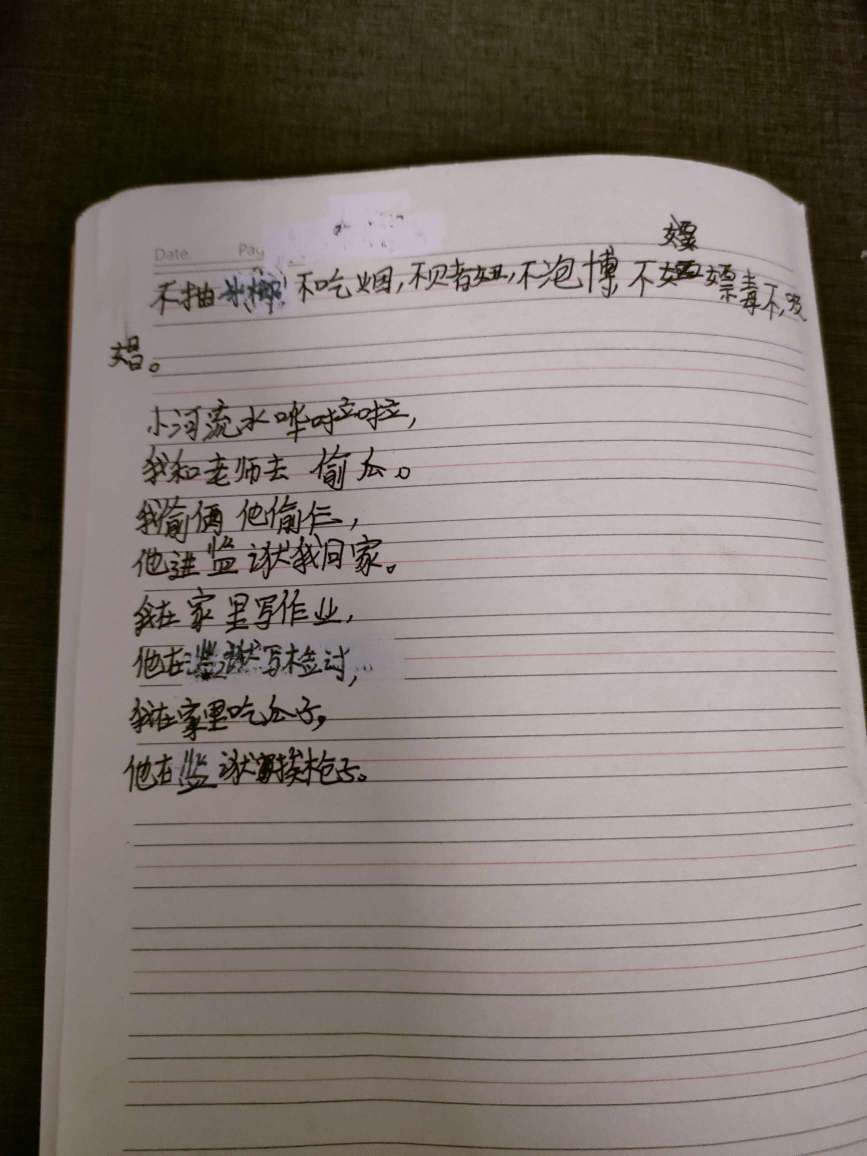 Date Pag
嫖
不抽水槟 不吃烟,不赌妞,不泡博,不嫖毒不,吸
娼。
小河流水哗啦啦,
我和老师去偷瓜。
我偷俩他偷仨,
他进监狱我回家。
我在家里写作业,
他在监狱写检讨,
我在家里吃瓜子,
他在监狱挨枪子。